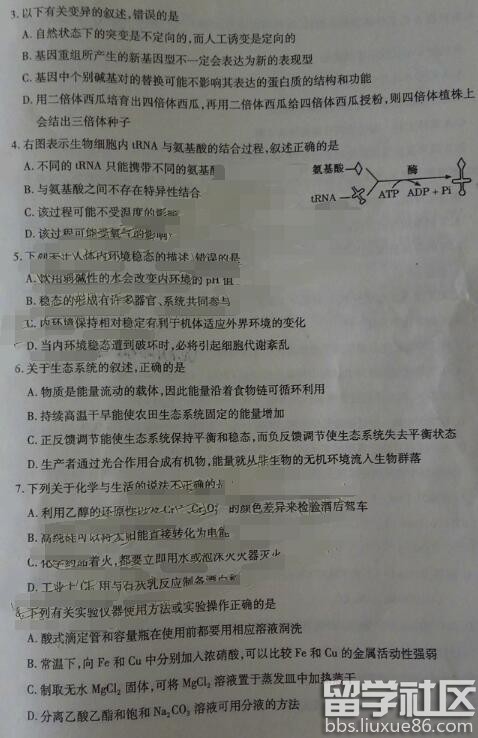 3. 以下有关变异的叙述,错误的是
A. 自然状态下的突变是不定向的,而人工诱变是定向的
B. 基因重组所产生的新基因型不一定会表达为新的表现型
C. 基因中个别碱基对的替换可能不影响其表达的蛋白质的结构和功能
D. 用二倍体西瓜培育出四倍体西瓜,再用二倍体西瓜给四倍体西瓜授粉,则四倍体植株上
会结出三倍体种子
4. 右图表示生物细胞内 tRNA 与氨基酸的结合过程,叙述正确的是
A. 不同的 tRNA 只能携带不同的氨基
B. 与氨基酸之间不存在特异性结合
C. 该过程可能不受温度的影响
D. 该过程可能受氧气的影响
氨基酸
酶
tRNA
ATP ADP + Pi
5. 人体内环境稳态的描述,错误的是
A. 饮用弱碱性的水会改变内环境的 pH 值
B. 稳态的形成有许多器官、系统共同参与
C. 内环境保持相对稳定有利于机体适应外界环境的变化
D. 当内环境稳态遭到破坏时,必将引起细胞代谢紊乱
6. 关于生态系统的叙述,正确的是
A. 物质是能量流动的载体,因此能量沿着食物链可循环利用
B. 持续高温干旱能使农田生态系统固定的能量增加
C. 正反馈调节能使生态系统保持平衡和稳态,而负反馈调节使生态系统失去平衡状态
D. 生产者通过光合作用合成有机物,能量就从非生物的无机环境流入生物群落
7. 下列关于化学与生活的说法不正确的是
A. 利用乙醇的还原性 的颜色差异来检验酒后驾车
B. 高纯硅可以将太阳能直接转化为电能
C. 化学药品着火,都要立即用水或泡沫灭火器灭火
D. 工业上 用与石灰乳反应制备漂白粉
8. 下列有关实验仪器使用方法或实验操作正确的是
A. 酸式滴定管和容量瓶在使用前都要用相应溶液润洗
B. 常温下,向 Fe 和 Cu 中分别加入浓硝酸,可以比较 Fe 和 Cu 的金属活动性强弱
C. 制取无水 MgCl₂ 固体,可将 MgCl₂ 溶液置于蒸发皿中加热蒸干
D. 分离乙酸乙酯和饱和 Na₂CO₃ 溶液可用分液的方法
留学社区
bbs.liuxue86.com